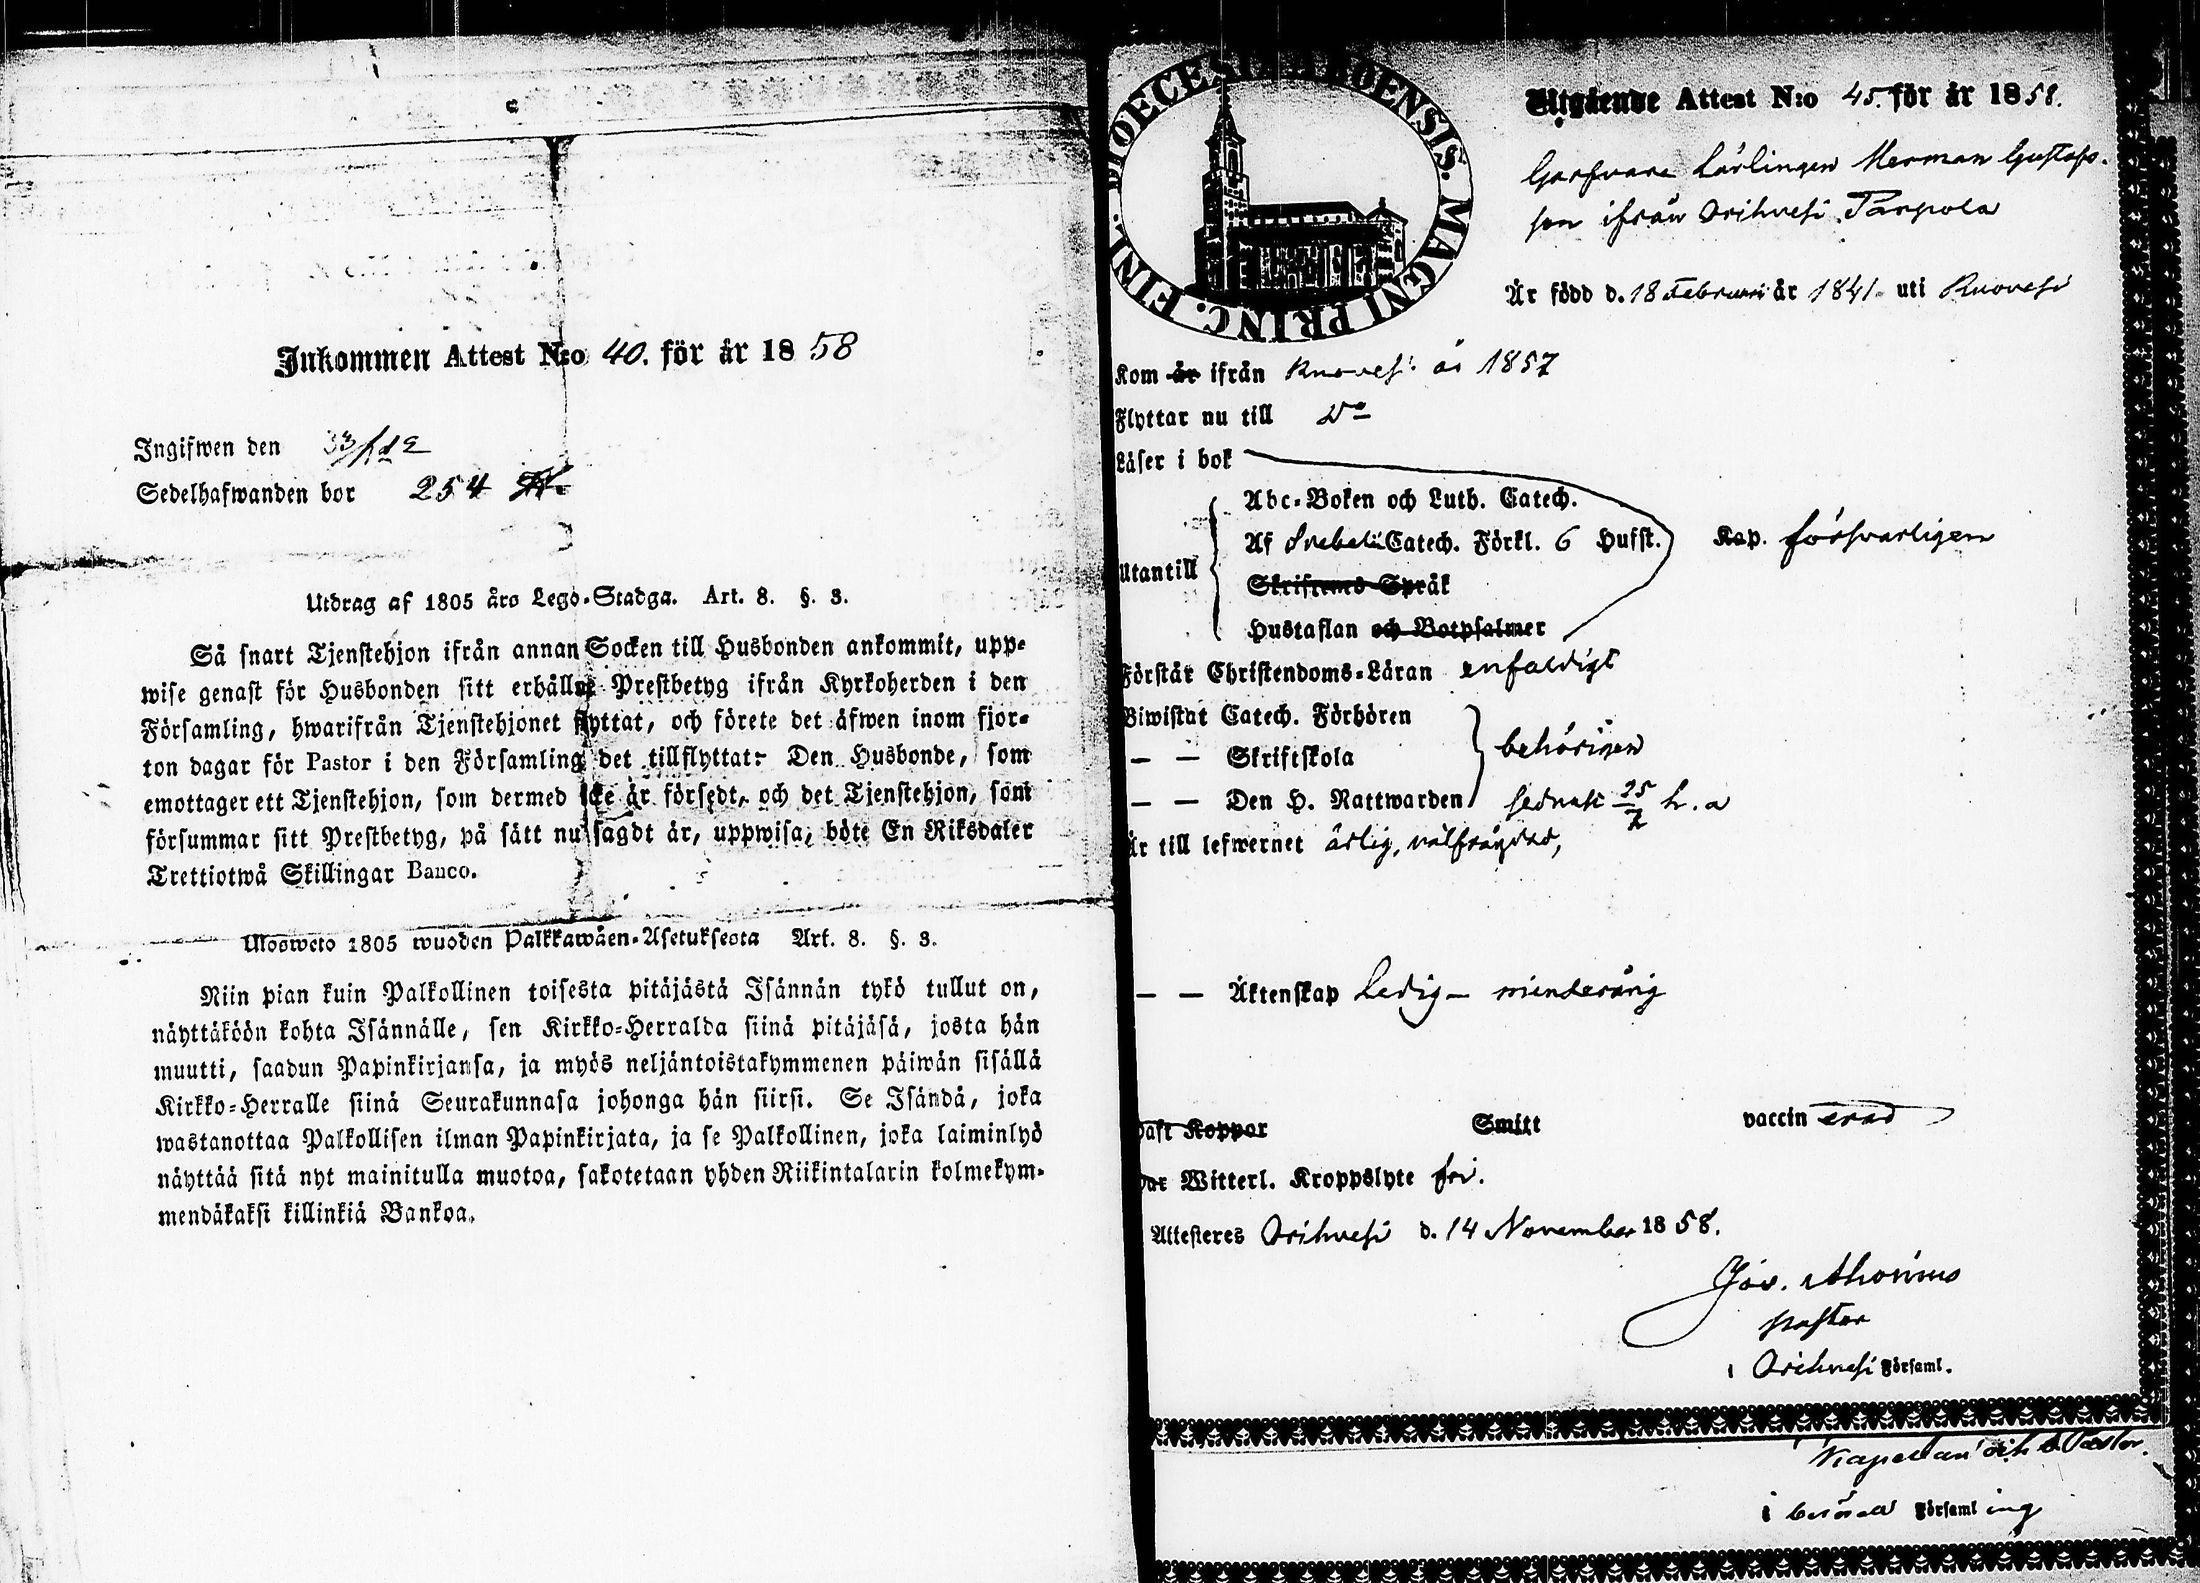 Inkommen Attest N:o 40. för år 1858
Ingifwen den
Sedelhafwanden bor 254
Utdrag af 1805 års Lego-Stadga. Art. 8. §. 3.
Så snart Tjenstehjon ifrån annan Socken till Husbonden ankommit, upp-
wise genast för Husbonden sitt erhållne Prestbetyg ifrån Kyrkoherden i den
Församling, hwarifrån Tjenstehjonet flyttat, och förete det äfwen inom fjor-
ton dagar för Pastor i den Församling det tillflyttat: Den Husbonde, som
emottager ett Tjenstehjon, som dermed icke är försedt, och det Tjenstehjon, som
försummar sitt Prestbetyg, på sätt nu sagdt är, uppwisa, böte En Riksdaler
Trettiotwå Skillingar Banco.
Ulosweto 1805 wuoden Palkkawäen-Asetuksesta Art. 8. §. 3.
Niin pian kuin Palkollinen toisesta pitäjästä Isännän tykö tullut on,
näyttäköön kohta Isännälle, sen Kirkko-Herralda siinä pitäjäsä, josta hän
muutti, saadun Papinkirjansa, ja myös neljäntoistakymmenen päiwän sisällä
Kirkko-Herralle siinä Seurakunnasa johonga hän siirsi. Se Isändä, joka
wastanottaa Palkollisen ilman Papinkirjata, ja se Palkollinen, joka laiminlyö
näyttää sitä nyt mainitulla muotoa, sakotetaan yhden Riikintalarin kolmekym-
mendäkaksi killinkiä Bankoa.
FINL. DIOECESIS ABOENSIS. MAGNI PRINC.
Utgående Attest N:o 45. för år 1858.
Garfvare Lärlingen Herman Gustafs-
son ifrån Orihvesi Tarpola
Är född d. 18 Februari år 1841 uti Ruovesi
Kom år ifrån Ruovesi år 1857
Flyttar nu till Do
Läser i bok
Abc-Boken och Luth. Catech.
Utantill
Af Svebelii Catech. Förkl. 6 Hufst. Kap. försvarligen
Skriftenes Språk
Hustaflan och Botpsalmer
Förstår Christendoms-Läran enfaldigt
Biwistat Catech. Förhören
— — Skriftskola behörigen
— — Den H. Nattwarden sednast 25/7 h. a
Är till lefwernet ärlig, välfräjdad,
— — Äktenskap Ledig — minderårig
Haft Koppor Smitt vaccinerad
Har Witterl. Kroppslyte fri.
Attesteres Orihvesi d. 14 November 1858.
Pastor
i Orihvesi Församl.
Kapellan och
i Församling